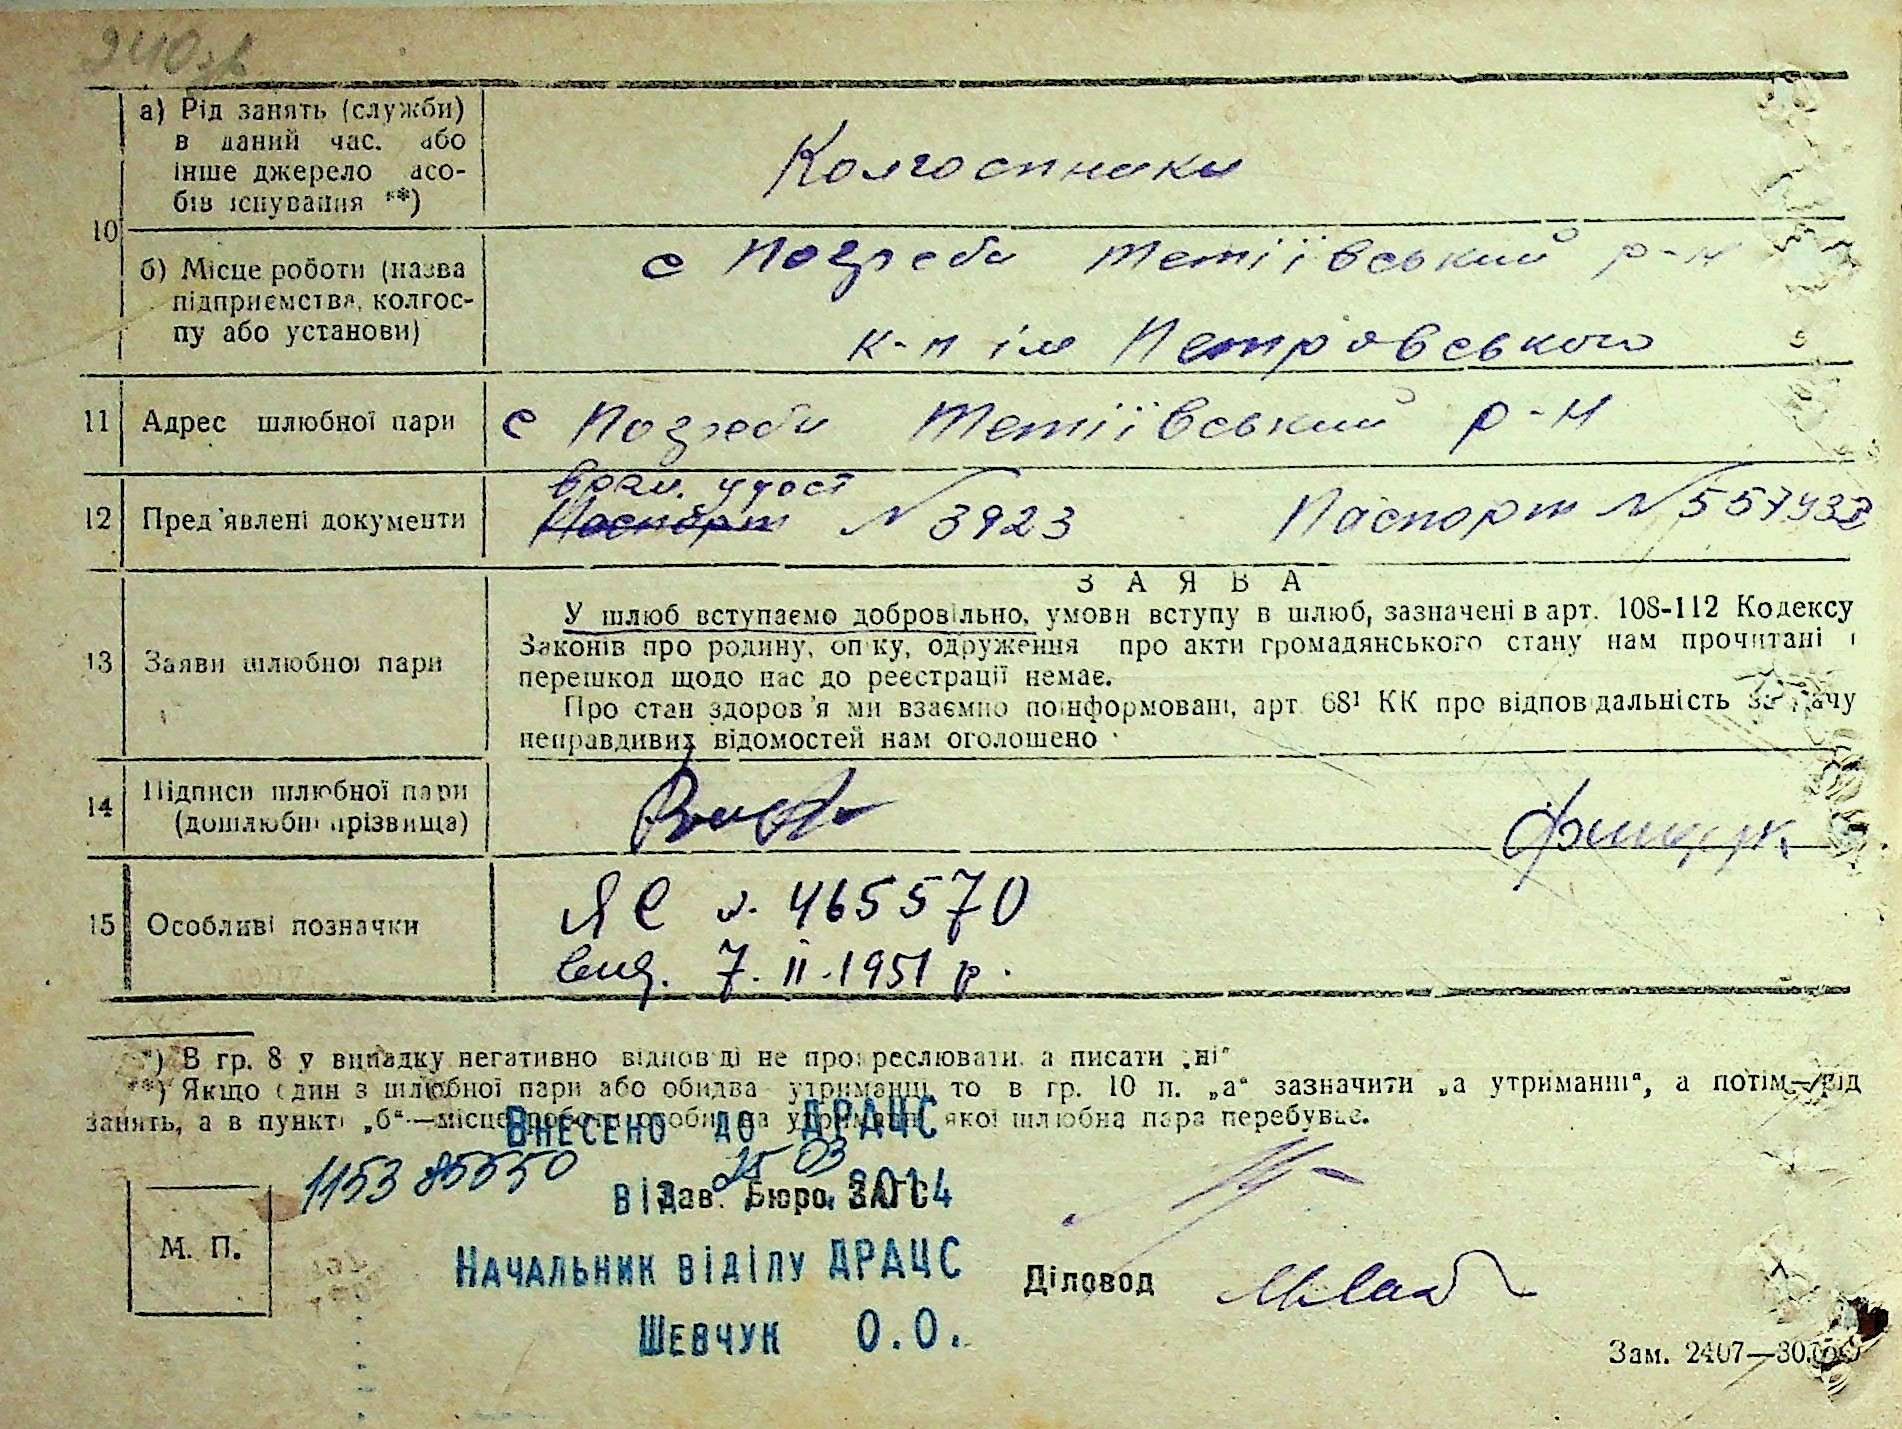 240зв
10
а) Рід занять (служби)
в даний час. або
інше джерело асо-
бів існування **)
Колгоспники
б) Місце роботи (назва
підприємства, колгос-
пу або установи)
с Погреби Тетіївський р-н
к-п ім Петровського
11 Адрес шлюбної пари с Погреби Тетіївський р-н
12 Пред'явлені документи
Паспорт № 3923 Паспорт №
ЗАЯВА
13 Заяви шлюбної пари
У шлюб вступаємо добровільно, умови вступу в шлюб, зазначені в арт. 108-112 Кодексу
Законів про родину, опіку, одруження про акти громадянського стану нам прочитані і
перешкод щодо нас до реєстрації немає.
Про стан здоров'я ми взаємно поінформовані, арт 68¹ КК про відповідальність за дачу
неправдивих відомостей нам оголошено
14 Підписи шлюбної пари
(дошлюбні прізвища)
Фищук
15 Особливі позначки
ЯЄ н. 465570
вид. 7.II.1951 р.
*) В гр. 8 у випадку негативно відповіді не прокреслювати, а писати „ні"
**) Якщо один з шлюбної пари або обидва утриманці то в гр. 10 п. „а" зазначити „а утриманні", а потім—рід
занять, а в пункті „б"—місце роботи особи на утриманні якої шлюбна пара перебуває.
Внесено до ДРАЦС
1153 85550 25 03
від 2014
Зав. Бюро ЗАГС
М. П.
Начальник відділу ДРАЦС
Діловод
Шевчук О.О.
Зам. 2407—30.000